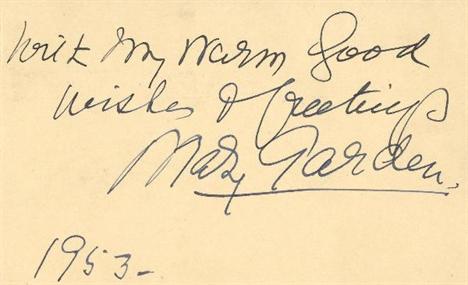 With my warm good
wishes & greetings
Mary Garden.
1953-